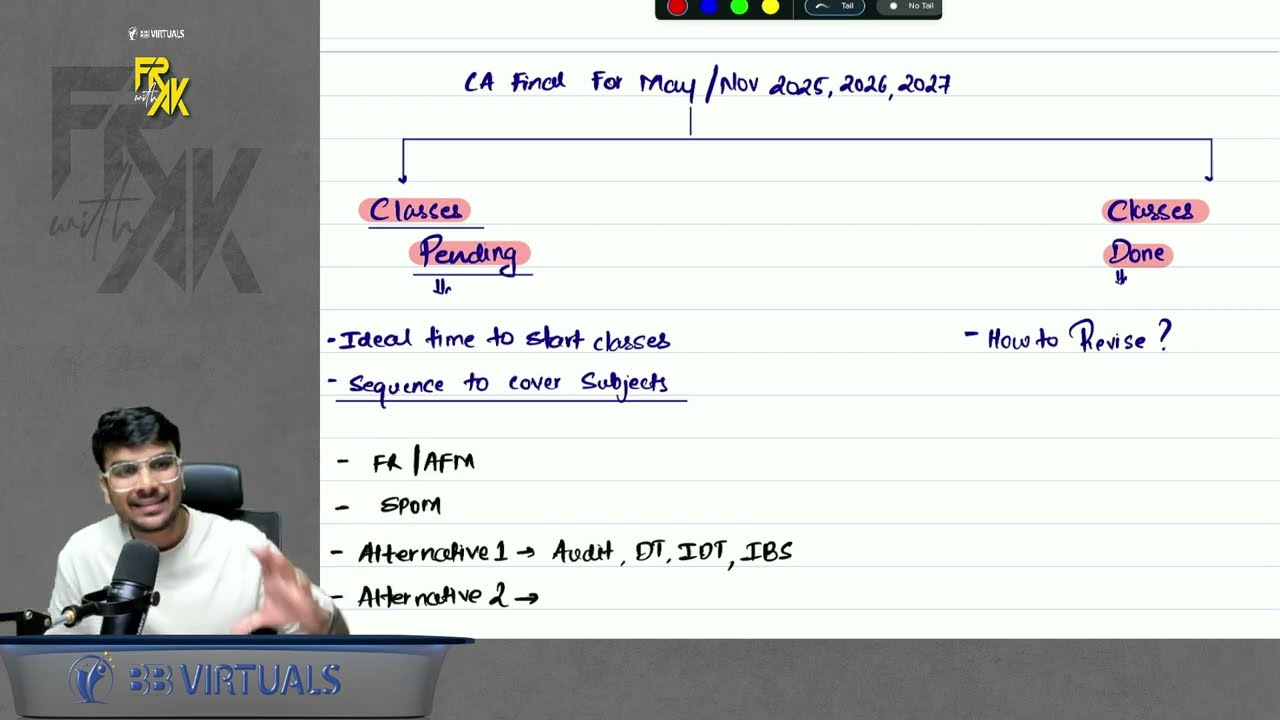 BB VIRTUALS
FR
with
AK
FR
with
AK
Tail
No Tail
CA Final For May/Nov 2025, 2026, 2027
Classes
Pending
Classes
Done
- Ideal time to start classes
- Sequence to cover Subjects
- How to Revise?
- FR/AFM
- SPOM
- Alternative 1 → Audit, DT, IDT, IBS
- Alternative 2 →
BB VIRTUALS